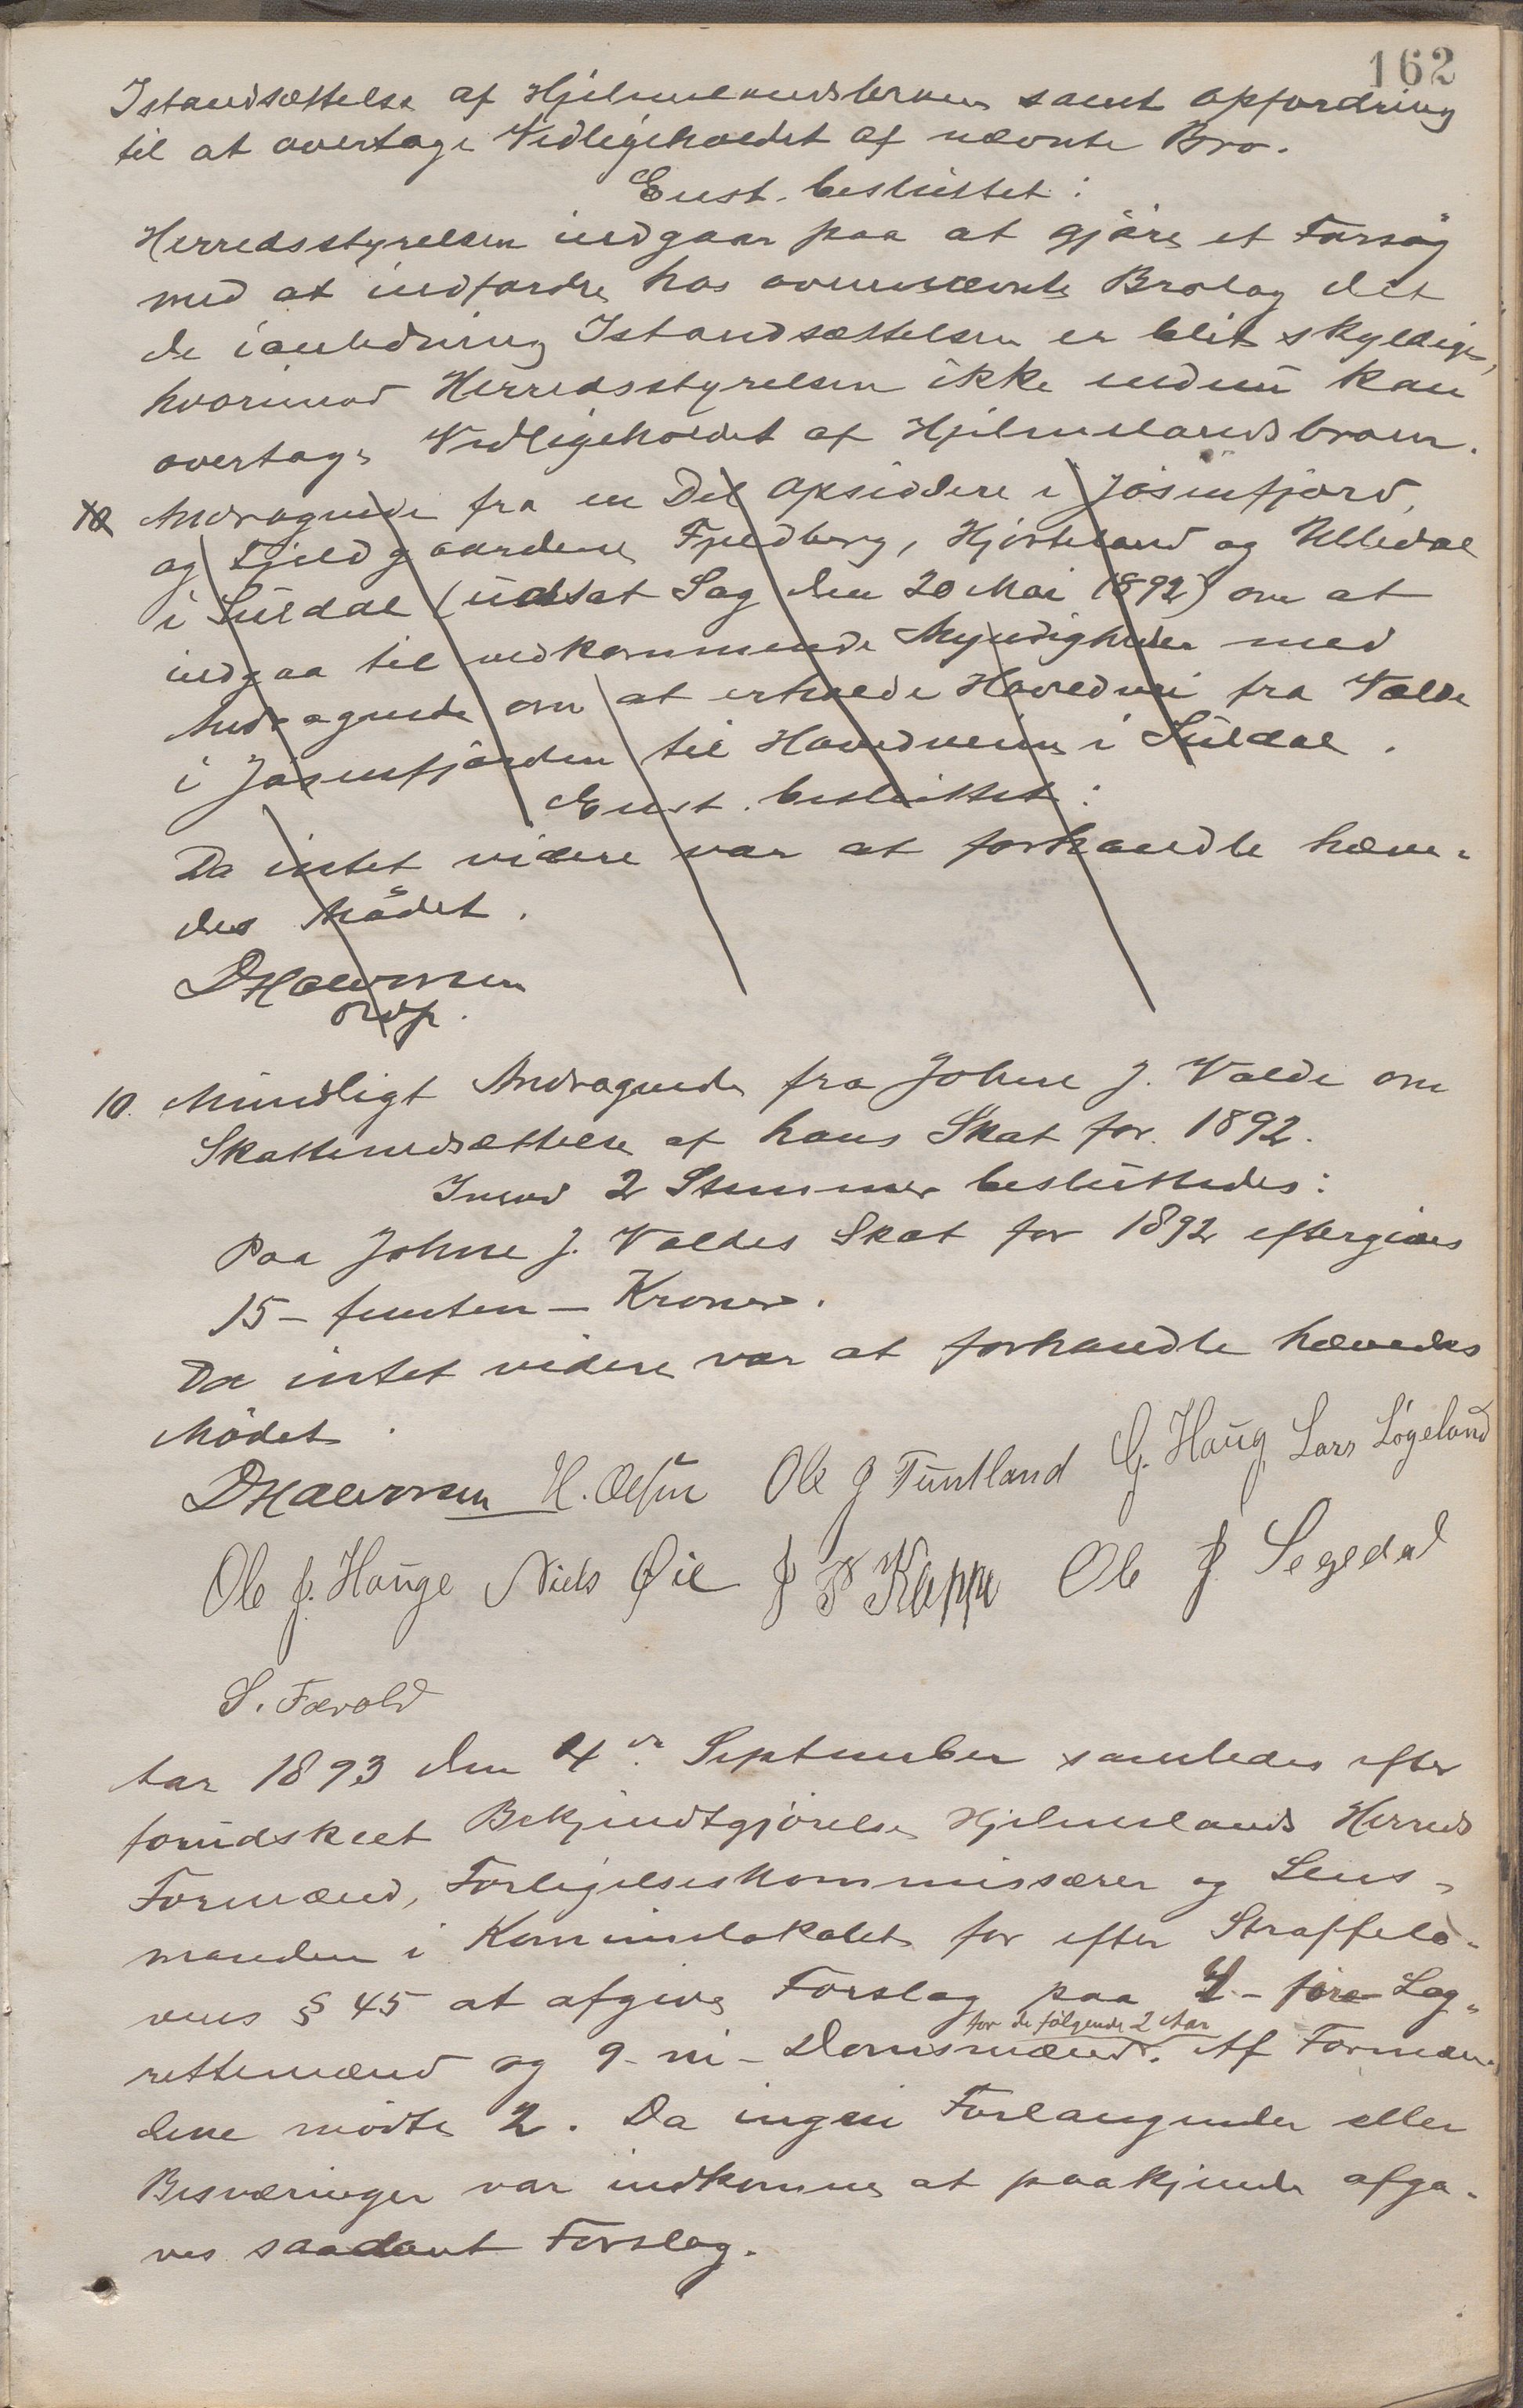 162
Istandsættelse af Hjelmelandsbroen samt Opfordring
til at overtage Vedligeholdet af nævnte Bro.
Enst. besluttet:
Herredsstyrelsen indgaar paa at gjöre et Forsög
med at indfordre hos ovennævnte Brolag det
de i anledning Istandsættelsen er blit skyldige,
hvorimod Herredsstyrelsen ikke endnu kan
overtage Vedligeholdet af Hjelmelandsbroen.
10 Andragende fra en Del Opsiddere i Jösenfjord,
og Fjeldgaardene Fjedberg, Hjorteland og Ulledal
i Suldal (udsat Sag den 20 Mai 1892) om at
indgaa til vedkommende Myndigheder med
Andragende om at erholde Hovedvei fra Valde
i Jösenfjorden til Hovedveien i Suldal.
Enst. besluttet:
Da intet videre var at forhandle hæve-
des Mödet.
D Halvorsen
Ordf.
10. Mundligt Andragende fra Johne J. Valde om
Skattenedsættelse af hans Skat for 1892.
Imod 2 Stemmer besluttedes:
Paa Johne J. Valdes Skat for 1892 eftergives
15 - femten - Kroner.
Da intet videre var at forhandle hævedes
Mödet.
D Halvorsen H. Olsen Ole J Tuntland G. Haug Lars Løgeland
Ole J. Hauge Niels Øie J P Kleppe Ole J. Segedal
S. Færold
Aar 1893 den 4de September samledes efter
forudskeet Bekjendtgjörelse Hjelmelands Herreds
Formænd, Forligelseskommissærer og Lens-
manden i Kommunelokalet for efter Straffelo-
vens § 45 at afgive Forslag paa 4 - fire - Lag-
for de fölgende 2 Aar
rettemænd og 9 - ni - Domsmænd. Af Formæn-
dene mödte 2. Da ingen Forlangender eller
Besværinger var indkomne at paakjende afga-
ves saadant Forslag.